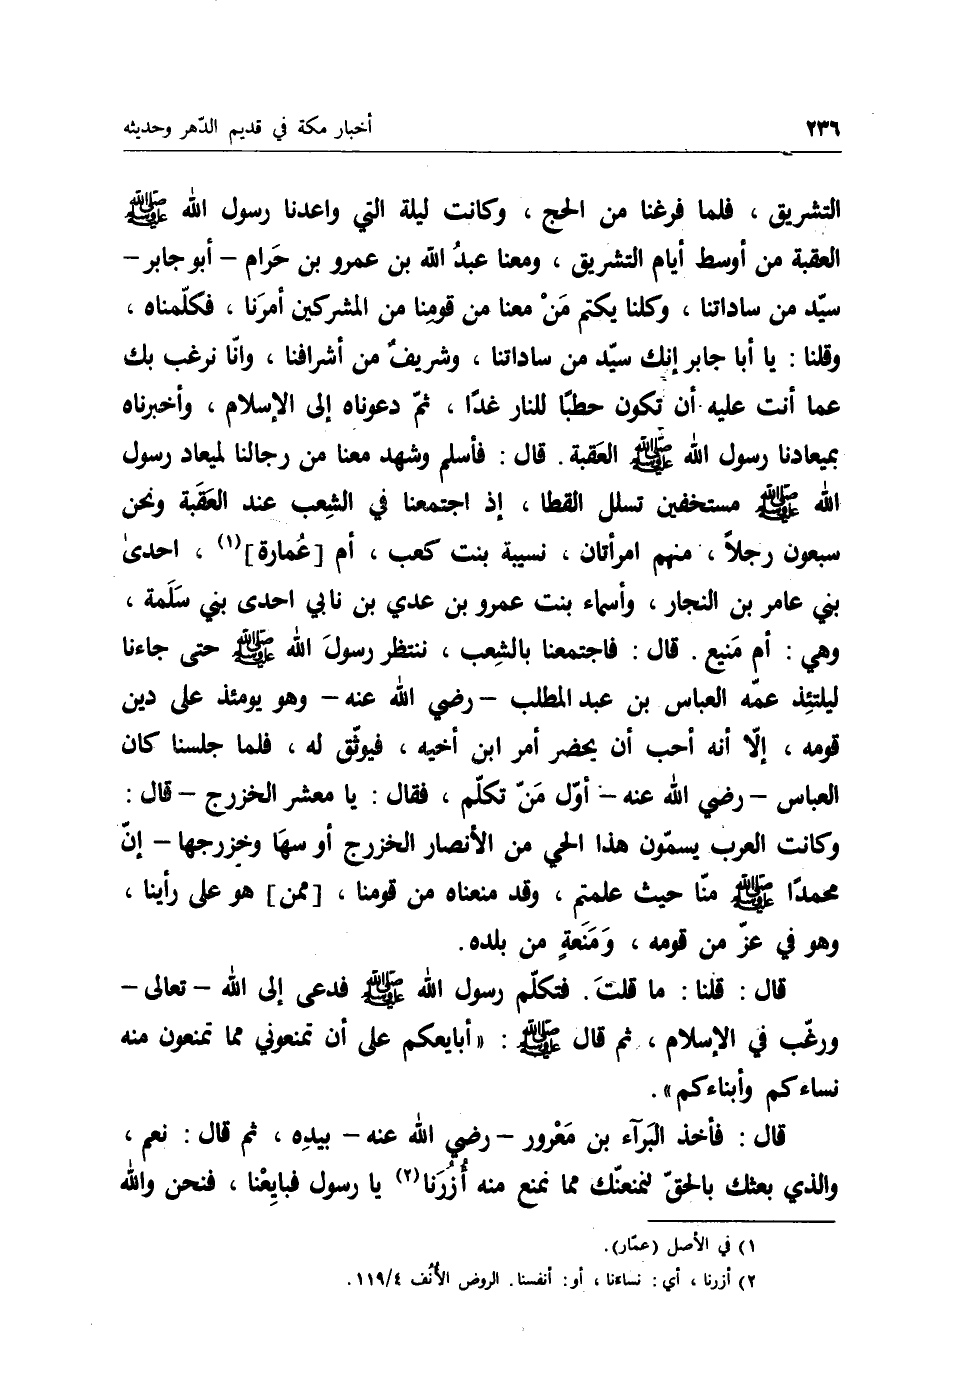 ٢٣٦
أخبار مكة في قديم الدّهر وحديثه
التشريق ، فلما فرغنا من الحج ، وكانت ليلة التي واعدنا رسول الله ﷺ
العقبة من أوسط أيام التشريق ، ومعنا عبدُ الله بن عمرو بن حَرام – أبو جابر –
سيّد من ساداتنا ، وكلنا يكتم مَنْ معنا من قومِنا من المشركين أمرَنا ، فكلّمناه ،
وقلنا : يا أبا جابر إنك سيّد من ساداتنا ، وشريفٌ من أشرافنا ، وانّا نرغب بك
عما أنت عليه أن تكون حطبًا للنار غدًا ، ثمّ دعوناه إلى الإسلام ، وأخبرناه
بميعادنا رسول الله ﷺ العَقبة . قال : فأسلم وشهد معنا من رجالنا لميعاد رسول
الله ﷺ مستخفين تسلل القطا ، إذ اجتمعنا في الشعِب عند العَقَبة ونحن
سبعون رجلاً ، منهم امرأتان ، نسيبة بنت كعب ، أم [عُمارة] (١) ، احدىٰ
بني عامر بن النجار ، وأسماء بنت عمرو بن عدي بن نابي احدى بني سَلَمة ،
وهي : أم مَنيع . قال : فاجتمعنا بالشعِب ، ننتظر رسولَ الله ﷺ حتى جاءنا
ليلتئِذ عمّه العباس بن عبد المطلب – رضي الله عنه – وهو يومئذ على دين
قومه ، إلّا أنه أحب أن يحضر أمر ابن أخيه ، فيوثّق له ، فلما جلسنا كان
العباس – رضي الله عنه – أوّل مَنّ تكلّم ، فقال : يا معشر الخزرج – قال :
وكانت العرب يسمّون هذا الحي من الأنصار الخزرج أو سهَا وخزرجها – إنّ
محمدًا ﷺ منّا حيث علمتم ، وقد منعناه من قومنا ، [ممن] هو على رأينا ،
وهو في عزّ من قومه ، وَمَنَعةٍ من بلده .
قال : قلنا : ما قلتَ . فتكلّم رسول الله ﷺ فدعى إلى الله – تعالى –
ورغّب في الإسلام ، ثم قال ﷺ : « أبايعكم على أن تمنعوني مما تمنعون منه
نساءكم وأبناءكم» .
قال : فأخذ البَرآء بن مَعْرور – رضي الله عنه – بيدِه ، ثم قال : نعم ،
والذي بعثك بالحقّ لنمنعنّك مما نمنع منه أُزُرَنا (٢) يا رسول فبايِعْنا ، فنحن والله
١) في الأصل (عمّار).
٢) أزرنا ، أي : نساءنا ، أو : أنفسنا . الروض الأُنُف ١١٩/٤ .